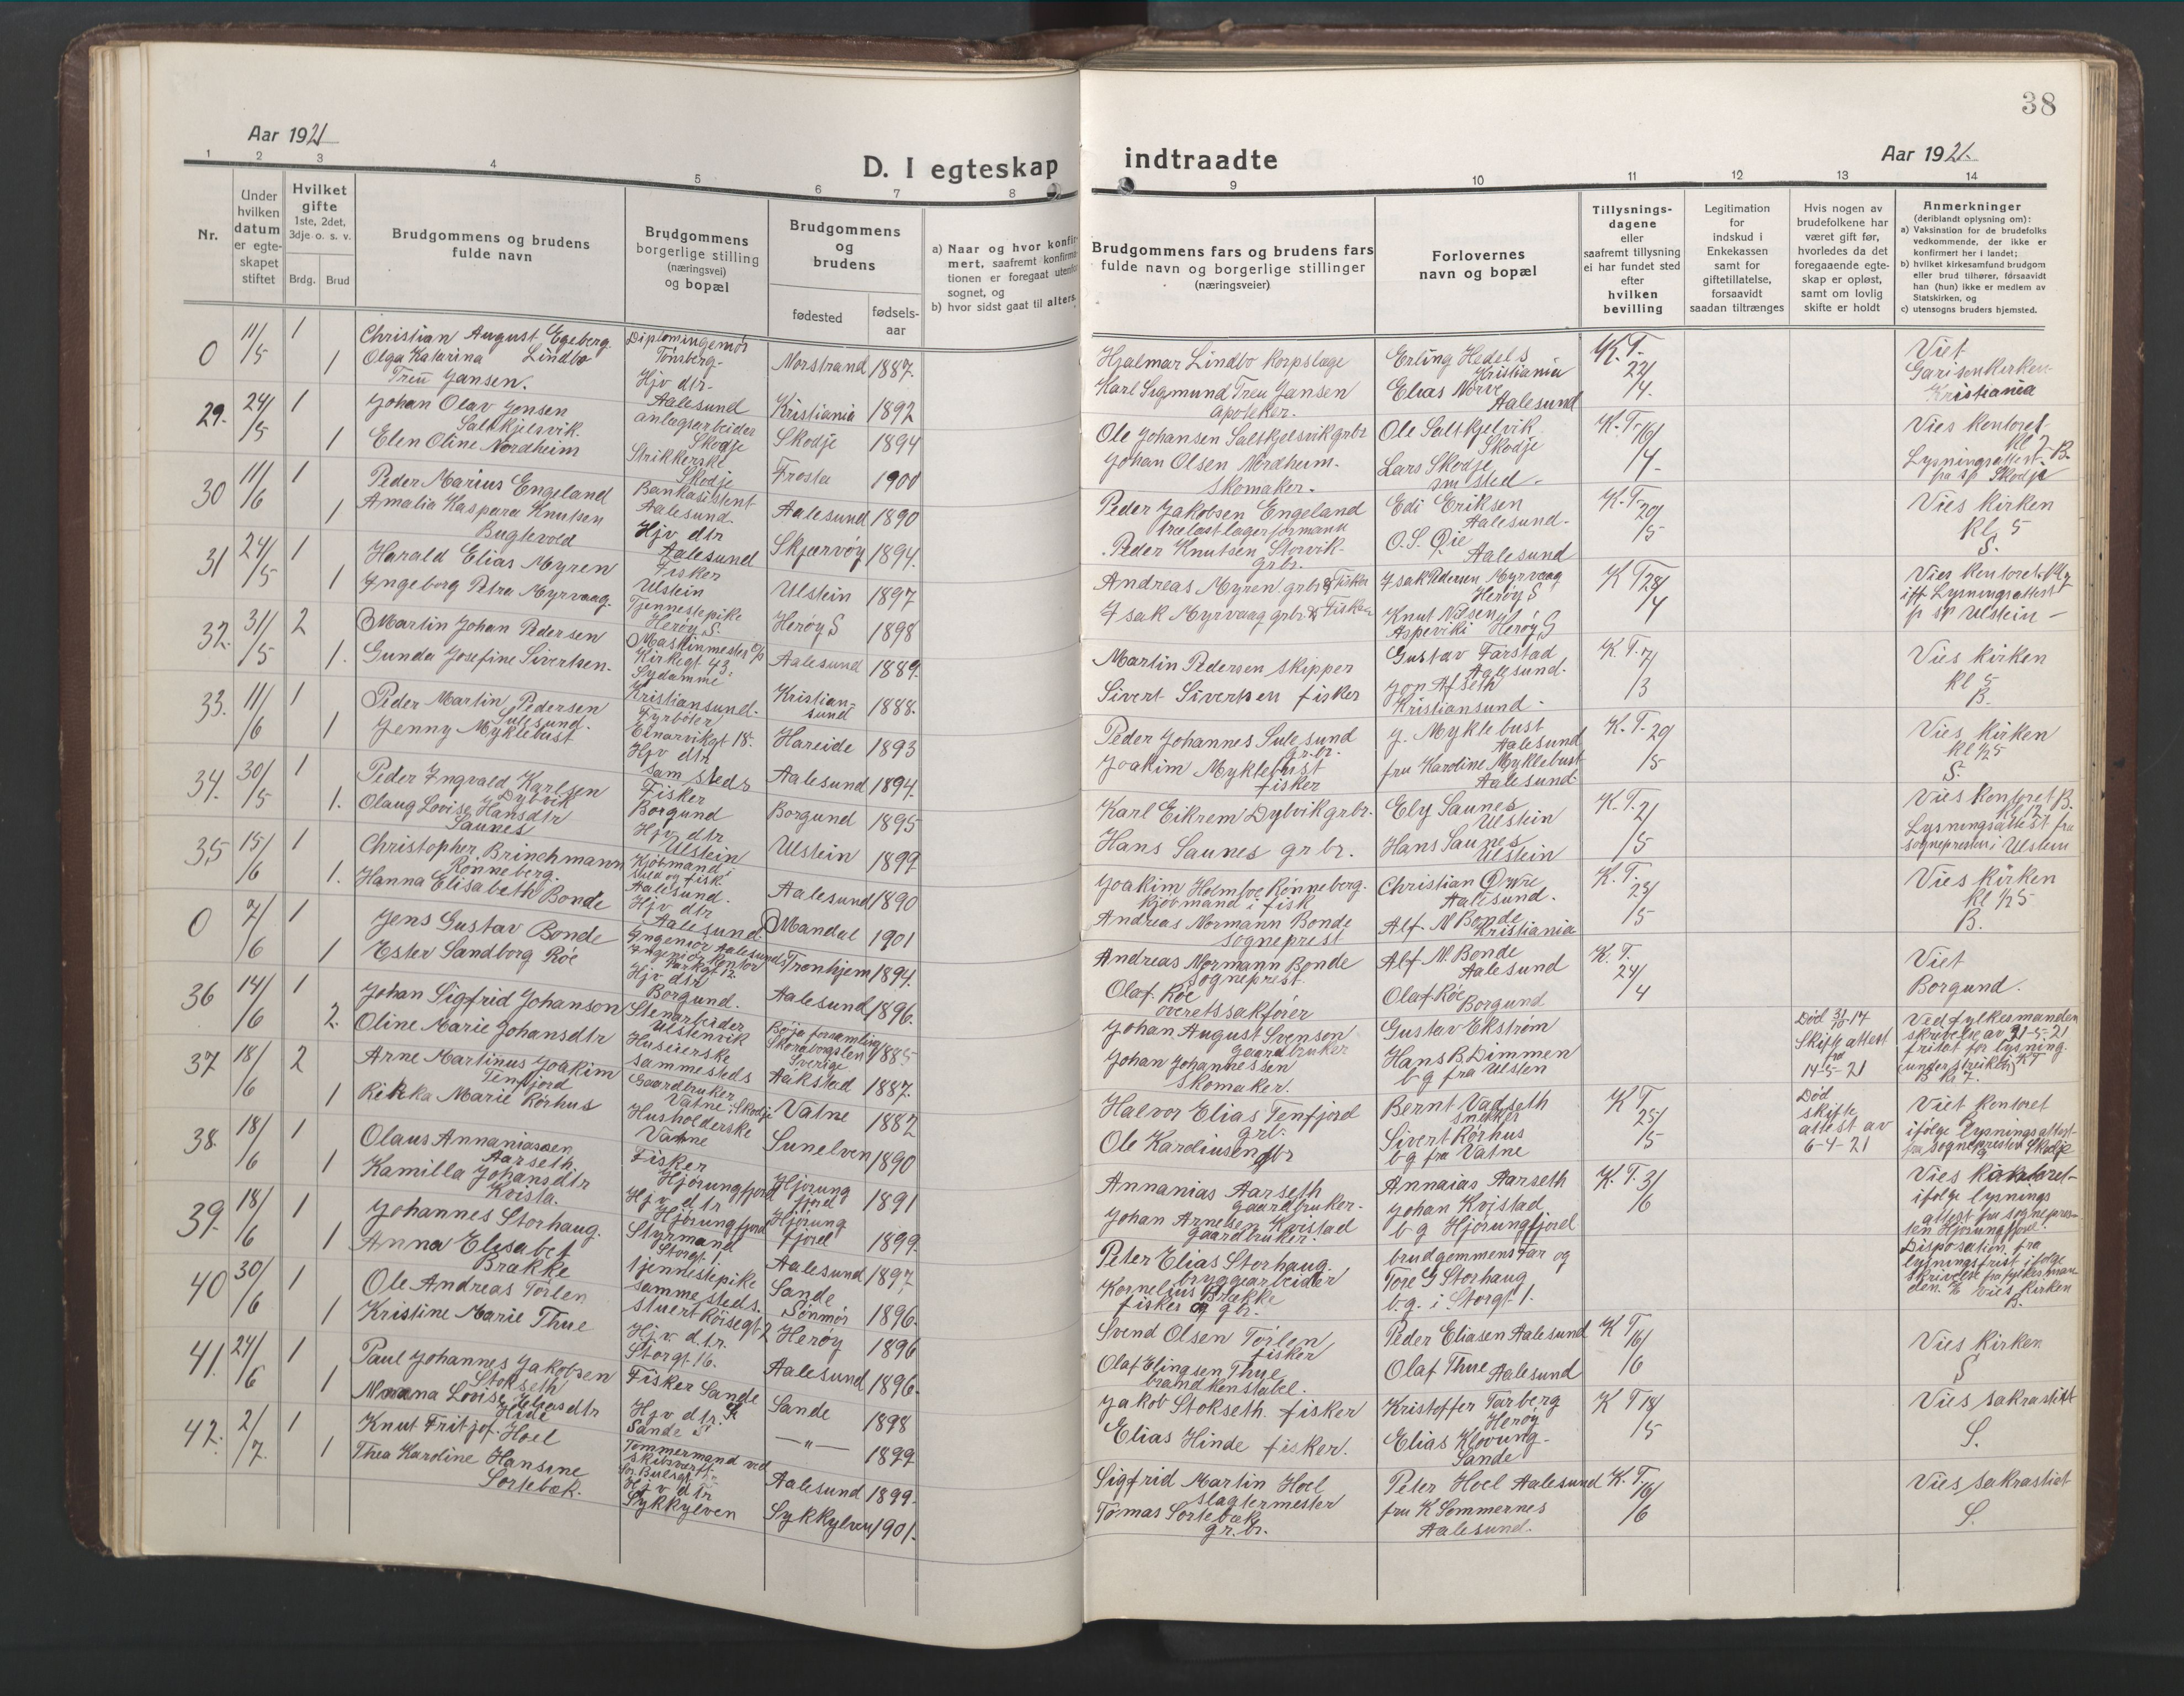 38
Aar 1921
Aar 1921.
D. I egteskap indtraadte
1 2 3 4 5 6 7 8 9 10 11 12 13 14
Nr.
Under
hvilken
datum
er egte-
skapet
stiftet
Hvilket
gifte
1ste, 2det,
3dje o. s. v.
Brdg. Brud
Brudgommens og brudens
fulde navn
Brudgommens
borgerlige stilling
(næringsvei)
og bopæl
Brudgommens
og
brudens
fødested
fødsels-
aar
a) Naar og hvor konfir-
mert, saafremt konfirma-
tionen er foregaat utenfor
sognet, og
b) hvor sidst gaat til alters.
Brudgommens fars og brudens fars
fulde navn og borgerlige stillinger
(næringsveier)
Forlovernes
navn og bopæl
Tillysnings-
dagene
eller
saafremt tillysning
ei har fundet sted
efter
hvilken
bevilling
Legitimation
for
indskud i
Enkekassen
samt for
giftetillatelse,
forsaavidt
saadan tiltrænges
Hvis nogen av
brudefolkene har
været gift før,
hvorledes da det
foregaaende egte-
skap er opløst,
samt om lovlig
skifte er holdt
Anmerkninger
(deriblandt oplysning om):
a) Vaksination for de brudefolks
vedkommende, der ikke er
konfirmert her i landet;
b) hvilket kirkesamfund brudgom
eller brud tilhører, forsaavidt
han (hun) ikke er medlem av
Statskirken, og
c) utensogns bruders hjemsted.
0 11/5 1
Christian August Egeberg
Lindbo
Diplomingeniør
Tønsberg-
Norstrand 1887.
Hjalmar Lindbo Korpslæge
Erling Hedels
Kristiania
K. T.
22/4.
Viet
Garisonkirken-
Kristiania
1
Olga Katarina
Treu Jansen.
Hjv dtr-
Aalesund
Kristiania 1892
Karl Sigmund Treu Jansen
apoteker.
Elias Norve
Aalesund
29. 24/5 1
Johan Olav Jonsen
Saltkjelsvik.
anlægsarbeider
Skodje
Skodje 1894
Ole Johansen Saltkjelsvik grbr
Ole Saltkjelvik
Skodje
K. T. 16/4-
Vies kontoret-
Kl 7- B.
Lysningsattest
fra sp Skodje
1
Elen Oline Nordheim
Strikkerske
Skodje
Frosta 1900
Johan Olsen Nordheim-
skomaker-
Lars Skodje
sm sted-
30 11/6 1
Peder Marius Engeland
Bankasistent
Aalesund
Aalesund 1890
Peder Jakobsen Engeland
trælastlagerformann
Edi Eriksen
Aalesund-
K. T. 20/5
Vies kirken
kl 5
S.
1
Amalia Kaspara Knutsen
Buglevold
Hjv dtr
Aalesund
Skjærvøy 1894.
Peder Knutsen Storvik-
grbr.
O. S. Øie
Aalesund
31 24/5 1
Harald Elias Myren
Fisker
Ulstein
Ulstein 1897
Andreas Myren grbr & Fisker
Isak Pedersen Myrvaag
Herøy S
K T 28/4
Vies kontoret
iff Lysningsattest
p sp Ulstein-
1
Ingeborg Petra Myrvaag.
Tjennestepike
Herøy S.
Herøy S 1898
Isak Myrvaag grbr & Fisker
Knut Nilsen
Aspeviki Herøy S
32. 31/5 2
Martin Johan Pedersen
Maskinmester
Kirkegt 43
Aalesund 1889.
Martin Pedersen skipper
Gustav Farstad
Aalesund.
K. T. 7/3
Vies kirken
kl 5
B.
1.
Gunda Josefine Sivertsen.
Sydamme
Kristiansund.
Kristian-
sund 1888.
Sivert Sivertsen fisker
Jon Afseth
Kristiansund-
33. 11/6 1
Peder Martin Pedersen
Sulesund.
Fyrbøter
Einarvikgt 18.
Hareide 1893
Peder Johannes Sulesund
gr. br.
J. Myklebust
Aalesund
K. T. 29/5
Vies kirken
kl 1/2 5
S.
1
Jenny Myklebust
Hjv dtr
sam steds
Aalesund 1894.
Joakim Myklebust
fisker
fru Karoline Myklebust
Aalesund
34. 30/5 1
Peder Ingvald Karlsen
Dybvik
Fisker
Borgund
Borgund 1895
Karl Eikrem Dybvik grbr.
Ely Saunes
Ulstein
K. T. 21/5
Vies kontoret B.
Kl 12.
Lysningsattest fra
sognepresten i Ulstein
1.
Olaug Lovise Hansdtr
Saunes
Hjv dtr
Ulstein
Ulstein 1899
Hans Saunes gr br.
Hans Saunes
Ulstein
35 15/6 1
Christopher Brinchmann
Rønneberg.
Kjøbmand i
sild og fisk.
Aalesund.
Aalesund 1890
Joakim Holmboe Rønneberg.
kjøbmand i fisk
Christian Øwre
Aalesund.
K. T. 23/5
Vies kirken
kl 1/2 5
B.
1.
Hanna Elisabeth Bonde
Hjv dtr
Aalesund.
Mandal 1901
Andreas Normann Bonde
sogneprest
Alf. N Bonde
Kristiania
0 7/6 1
Jens Gustav Bonde
Ingeniør Aalesunds
Ingeniørkontor
Parkgt 12
Tronhjem 1894.
Andreas Normann Bonde
Sogneprest.
Alf N. Bonde
Aalesund
K. T.
24/4
Viet
Borgund.
1
Ester Sandborg Røe
Hjv dtr
Borgund.
Aalesund 1896.
Olaf Røe
overetssakfører
Olaf Røe Borgund
36 14/6 1
Johan Sigfrid Johanson
Stenarbeider
Ulstenvik
Børja forsamling
Skaraborgslen
Sverige 1885
Johan August Svenson
Gaardbruker
Gustav Ekstrøm
Død 31/10-14
Skifteattest
fra
14-5-21
Ved fylkesmanden
skrivelse av 31-5-21
fritat for lysning.
(under streiken) KT
B Kl 7.
2.
Oline Marie Johansdtr
Huseierske
sammesteds
Aakstad 1887.
Johan Johannessen
Skomaker.
Hans B. Dimmen
b g fra Ulsten
37 18/6 2
Arne Martinus Joakim
Tenfjord
Gaardbruker
Vatne i Skodje
Vatne 1882
Halvor Elias Tenfjord
grb.
Bernt Vadseth
snikker
K T
25/5
Død
skifte
attest av
6-4-21
Viet kontoret
ifølge lysningsattest
fra sognepresten Skodje
1
Rikka Marie Rørhus
Husholderske
Vatne
Sunelven 1890
Ole Karoliusen gbr
Sivert Rørhus
b g fra Vatne
38. 18/6 1
Olaus Annaniassen
Aarseth
Fisker
Hjørungfjord
Hjørung
fjord 1891
Annanias Aarseth
gaardbruker.
Annaias Aarseth
K. T. 3/6
Vies kontoret-
ifølge lysnings
attest fra sognepres-
ten Hjørungfjord
1
Kamilla Johansdtr
Kvista.
Hjv dtr
Hjørungfjord
Hjørung
fjord 1899.
Johan Arnelsen Kvistad
Gaardbruker.
Johan Kvistad
b g Hjørungfjord
39. 18/6 1
Johannes Storhaug.
Styrmand
Storgt 1
Aalesund 1897
Peter Elias Storhaug.
bryggearbeider
brudgommens far og
Disposation fra
lysningsfrist ifølge
skrivelse fra fylkesman
den. Vies kirken
B.
1
Anna Elisabet
Brække
Tjennestepike
samme steds.
Sande
Sønmør 1896.
Kornelius Brække
fisker og gbr.
Tore G Storhaug
b.g. i Storgt 1.
40 30/6 1
Ole Andreas Torlen
stuert Korsegt 2
Herøy 1896
Svend Olsen Torlen
fisker
Peder Eliasen Aalesund
K T 16/6
Vies kirken
S
1
Kristine Marie Thue
Hjv d.t.r.
Storgt. 16.
Aalesund 1896.
Olaf Elingsen Thue
brandkonstabel.
Olaf Thue Aalesund
41. 24/6 1
Paul Johannes Jakobsen
Stokseth
Fisker Sande
Sande 1898
Jakob Stokseth. fisker
Kristoffer Tarberg
Herøy
K T 18/5
Vies sakrastiet
S.
1
Lovise Eliasdtr
Hide
Hjv dtr. S
Sande S
—"— 1899
Elias Hinde fisker.
Elias Klovung-
Sande
42. 2/7. 1
Knut Fritjof Hoel
Tømmermand ved
skibsværft
Aalesund 1899.
Sigfrid Martin Hoel
slagtermester
Peter Hoel Aalesund
K. T. 16/6
Vies sakrastiet
S.
1
Thea Karoline Hansine
Sortebæk.
Hjv dtr
Sykkylven
Sykkylven 1901.
Tomas Sortebæk
gr. br.
fru K Sommernes
Aalesund.